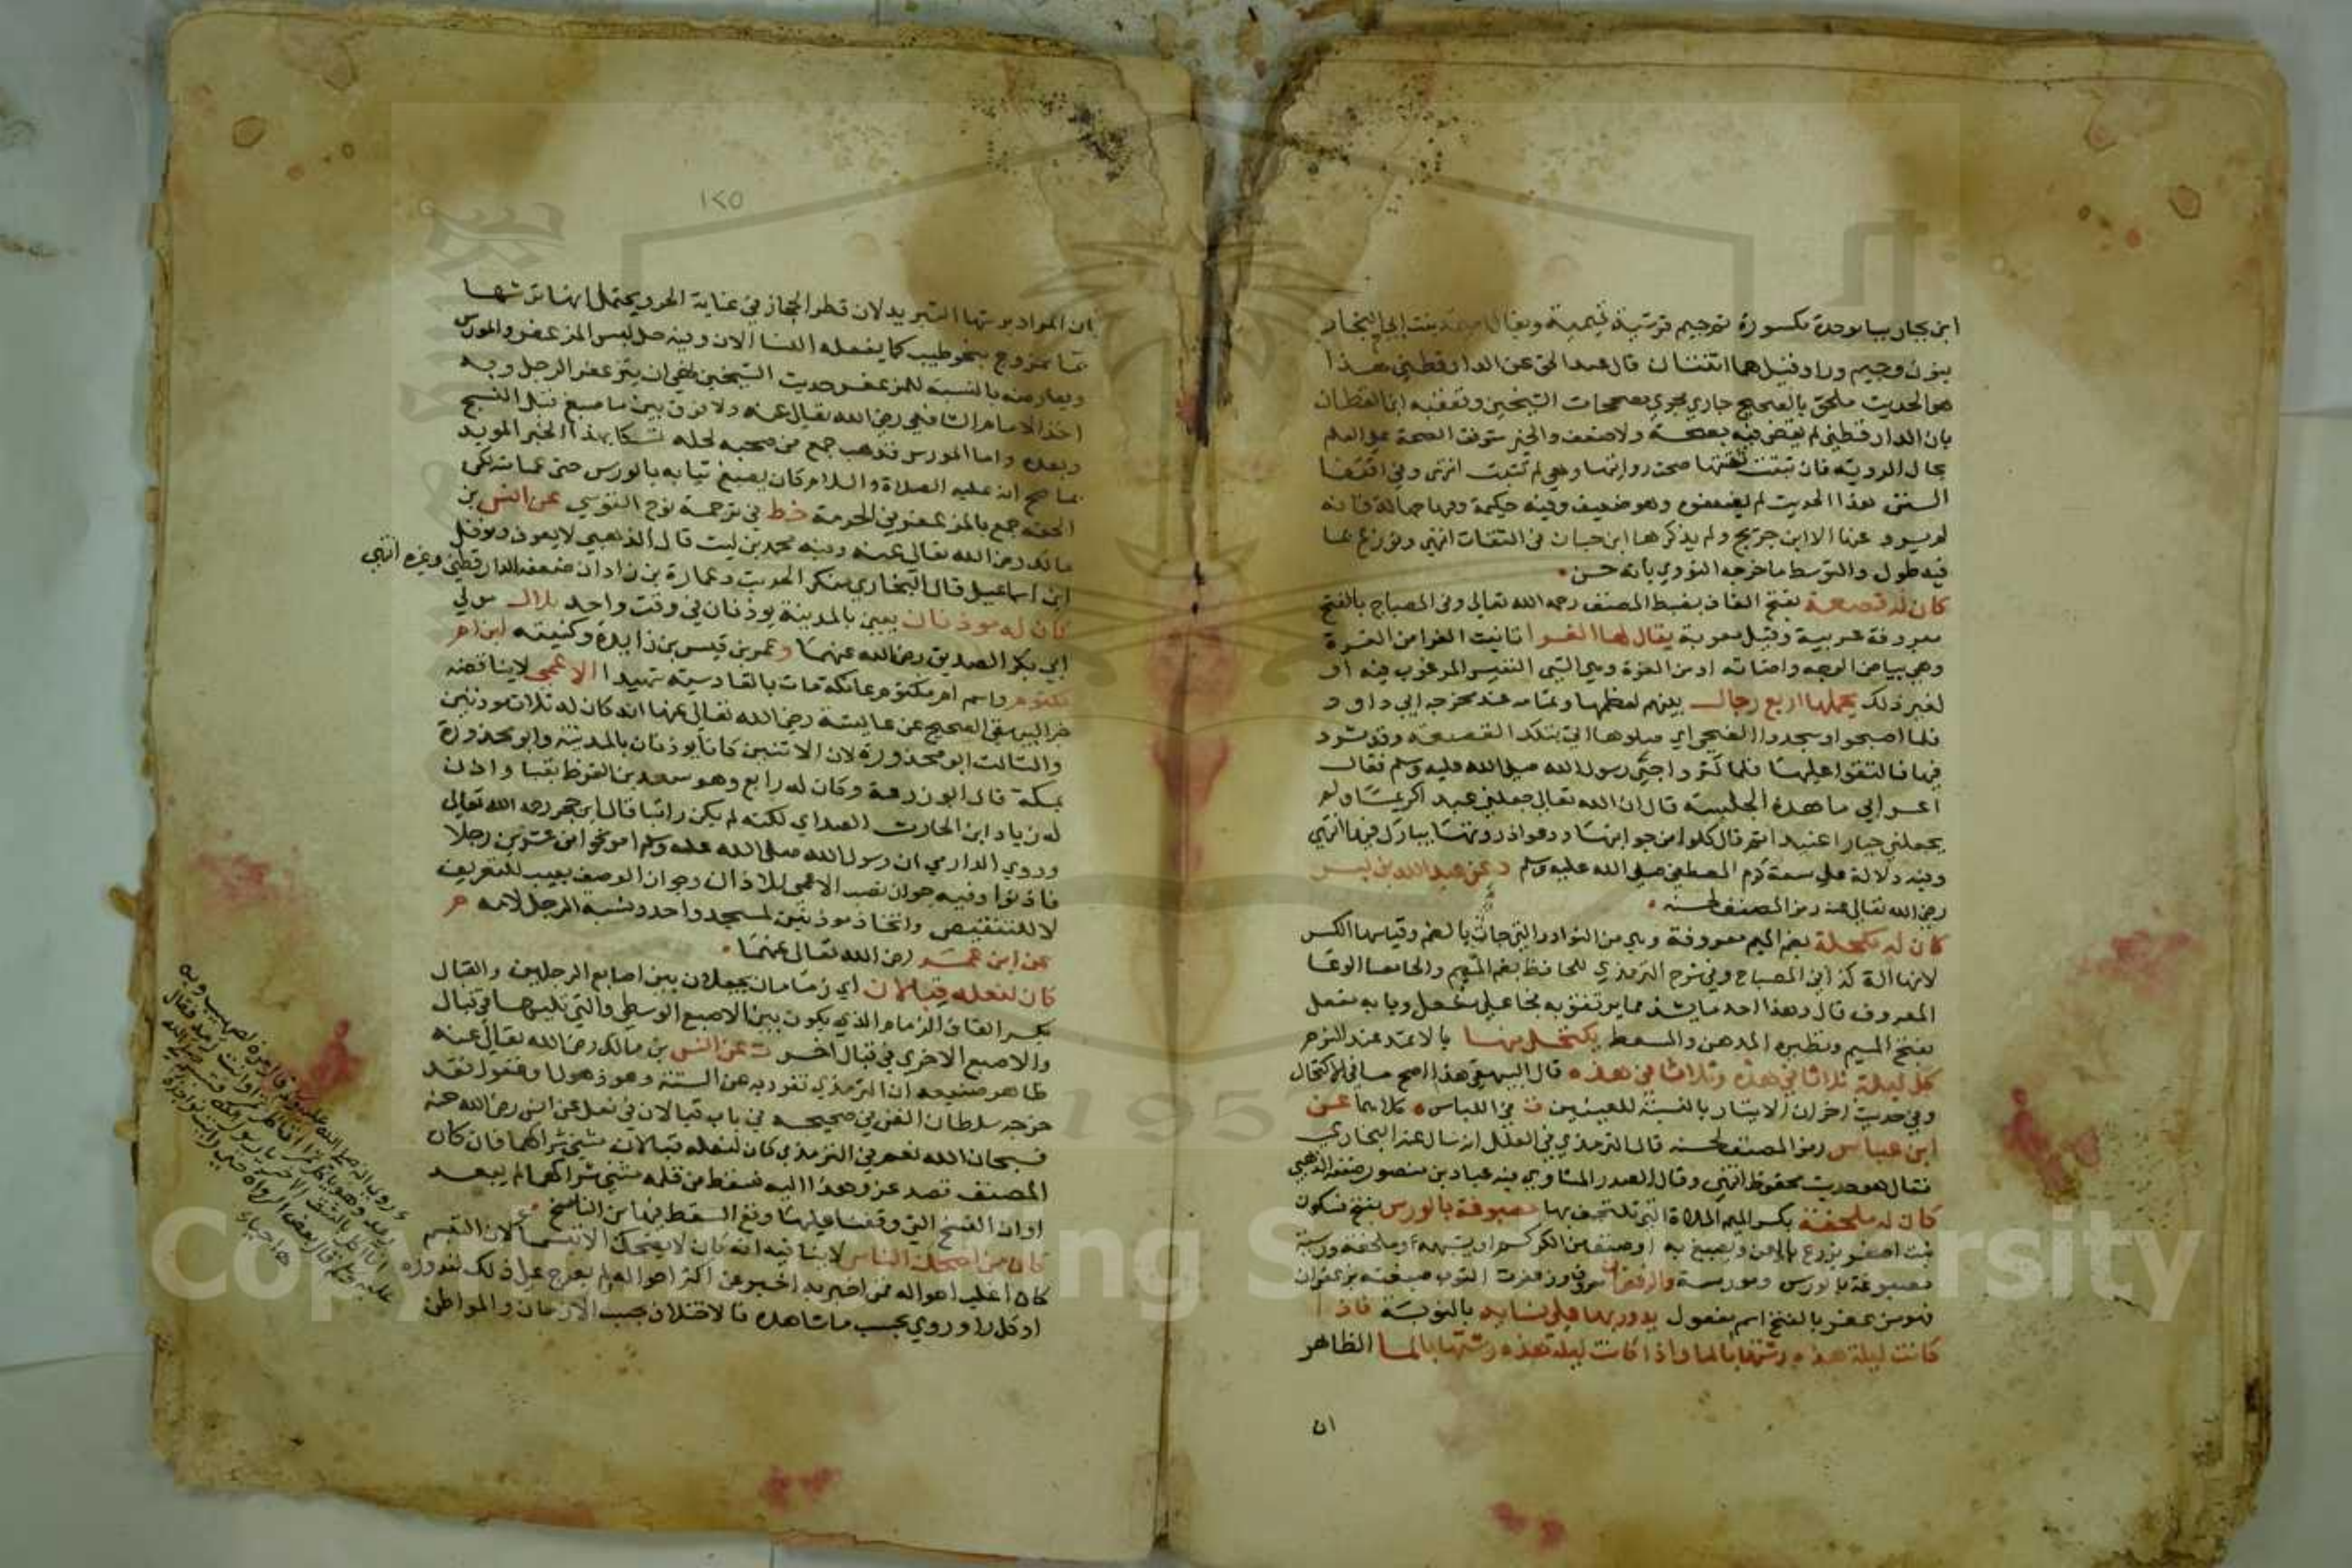 ابن بجاد بباء موحدة مكسورة ثم جيم قرشية تيمية ويقال اميمة بنت ابي النجار
بنون وجيم وراء وقيل هما اثنتان قال عبد الحق عن الدارقطني هذا
هو الحديث ملحق بالصحيح جاري مجرى مصححات الشيخين وتعقبه ابن القطان
بان الدارقطني لم يقض فيه بصحة ولا ضعف والخبر متوقف الصحة على العلم
بحال الروية فان ثبتت ثقتها صحت روايتها وهي لم تثبت انتهى وفي اقتفا
السنن هذا الحديث لم يضعفوه وهو ضعيف وفيه حكيمة وفيها جهالة فانه
لم يرو عنها الا ابن جريج ولم يذكرها ابن حبان في الثقات انتهى ونوزع بما
فيه طول والتوسط ما خرجه النووي بانه حسن
كان له قصعة بفتح القاف بضبط المصنف رحمه الله تعالى وفي المصباح بالفتح
معروفة عربية وقيل معربة يقال لها الغرا تانيث الاغر من الغرة
وهي بياض الوجه واضاته او من الغرة وهي الشي النفيس المرغوب فيه او
لغير ذلك يحملها اربع رجال بينهم لعظمها وتمامه عند مخرجه ابي داود
فلما اصبحوا وسجدوا الضحى اي صلوها اتى بتلك القصعة وقد ثرد
فيها فالتفوا عليها فلما كثروا جثى رسول الله صلى الله عليه وسلم فقال
اعرابي ما هذه الجلسة قال ان الله تعالى جعلني عبدا كريما ولم
يجعلني جبارا عنيدا ثم قال كلوا من جوانبها ودعوا ذروتها يبارك فيها انتهى
وفيه دلالة على سعة كرم المصطفى صلى الله عليه وسلم د عن عبد الله بن بسر
رضي الله تعالى عنه رمز المصنف لحسنه
كان له مكحلة بضم الميم معروفة وهي من النوادر التي جات بالضم وقياسها الكسر
لانها الة كذا في المصباح وفي شرح الترمذي للحافظ بضم الميم والحا معا الوعا
المعروف قال وهذا احد ما يشذ مما يرتفق به نجا على مفعل وبابه مفعل
بفتح الميم ونظيره المدهن والمسعط يكتحل منها بالاثمد عند النوم
كل ليلة ثلاثا في هذه وثلاثا في هذه قال البيهقي هذا اصح ما في الاكتحال
وفي حديث اخر ان الايتار بالنسبة للعينين ت في اللباس ه كلاهما عن
ابن عباس رمز المصنف لحسنه قال الترمذي في العلل انه سال عنه البخاري
فقال هو حديث محفوظ انتهى وقال الصدر المناوي فيه عباد بن منصور ضعفه الذهبي
كان له ملحفة بكسر الميم الملاة التي تلتحف بها مصبوغة بالورس بفتح فسكون
نبت اصفر يزرع باليمن ويصبغ به او صنف من الكركم او يشبهه وملحفة ورسية
مصبوغة بالورس ومورسة والزعفران معروف وزعفرت الثوب صبغته بزعفران
فهو مزعفر بالفتح اسم مفعول يدور بها على نسايه بالنوبة فاذا
كانت ليلة هذه رشتها بالما واذا كانت ليلة هذه رشتها بالما الظاهر
ان
١٢٥
ان المراد برشها التبريد لان قطر الحجاز في غاية الحر ويحتمل انها ترشها
بما ممزوج بنحو طيب كما يفعله النسا الان وفيه حل لبس المزعفر والمورس
ويعارضه بالنسبة للمزعفر حديث الشيخين نهى ان يتزعفر الرجل وبه
اخذ الامام الشافعي رضي الله تعالى عنه ولا فرق بين ما صبغ قبل النسج
وبعده واما المورس فذهب جمع من صحبه لحله تمسكا بهذا الخبر المويد
بما صح انه عليه الصلاة والسلام كان يصبغ ثيابه بالورس حتى عمامته لكن
الحقه جمع بالمزعفر في الحرمة خط في ترجمة نوح القومسي عن انس بن
مالك رضي الله تعالى عنه وفيه محمد بن ليث قال الذهبي لا يعرف ومومل
ابن اسماعيل قال البخاري منكر الحديث وعمارة بن زادان ضعفه الدارقطني وغيره انتهى
كان له موذنان يعني بالمدينة يوذنان في وقت واحد بلال مولى
ابي بكر الصديق رضي الله عنهما وعمرو بن قيس بن زايدة وكنيته ابن ام
مكتوم واسم ام مكتوم عاتكة مات بالقادسية شهيدا الاعمى لا يناقضه
خبر البيهقي الصحيح عن عايشة رضي الله تعالى عنها انه كان له ثلاث موذنين
والثالث ابو محذورة لان الاثنين كانا يوذنان بالمدينة وابو محذورة
بمكة قال ابو زرعة وكان له رابع وهو سعد بن القرظ بقبا واذن
له زياد ابن الحارث الصداي لكنه لم يكن راتبا قال ابن حجر رحمه الله تعالى
وروي الدارمي ان رسول الله صلى الله عليه وسلم امر نحوا من عشرين رجلا
فاذنوا وفيه جواز نصب الاعمى للاذان وجواز الوصف بعيب للتعريف
لا للتنقيص واتخاذ موذنين لمسجد واحد ونسبة الرجل لامه م
عن ابن عمر رضي الله تعالى عنهما
كان لنعله قبالان اي زمامان يجعلان بين اصابع الرجلين والقبال
بكسر القاف الزمام الذي يكون بين الاصبع الوسطى والتي تليها في قبال
والاصبع الاخرى في قبال اخر ت عن انس بن مالك رضي الله تعالى عنه
ظاهر صنيعه ان الترمذي تفرد به عن الستة وهو ذهول وغفول فقد
خرجه سلطان الفن في صحيحه في باب قبالان في نعل عن انس رضي الله عنه
فسبحان الله نعم في الترمذي كان لنعله قبالان مثنى شراكهما فان كان
المصنف قصد عزو هذا اليه فسقط من قلمه مثنى شراكهما لم يبعد
او ان النسخ التي وقفنا عليها وقع السقط فيها من الناسخ
كان من اضحك الناس لا ينافيه انه كان لا يضحك الا تبسما لان التبسم
كان اغلب احواله فمن اخبر به اخبر عن اكثر احواله ولم يعرج على ذلك لندوره
او كل راو روى بحسب ما شاهده فالاختلاف بحسب الازمان والمواطن